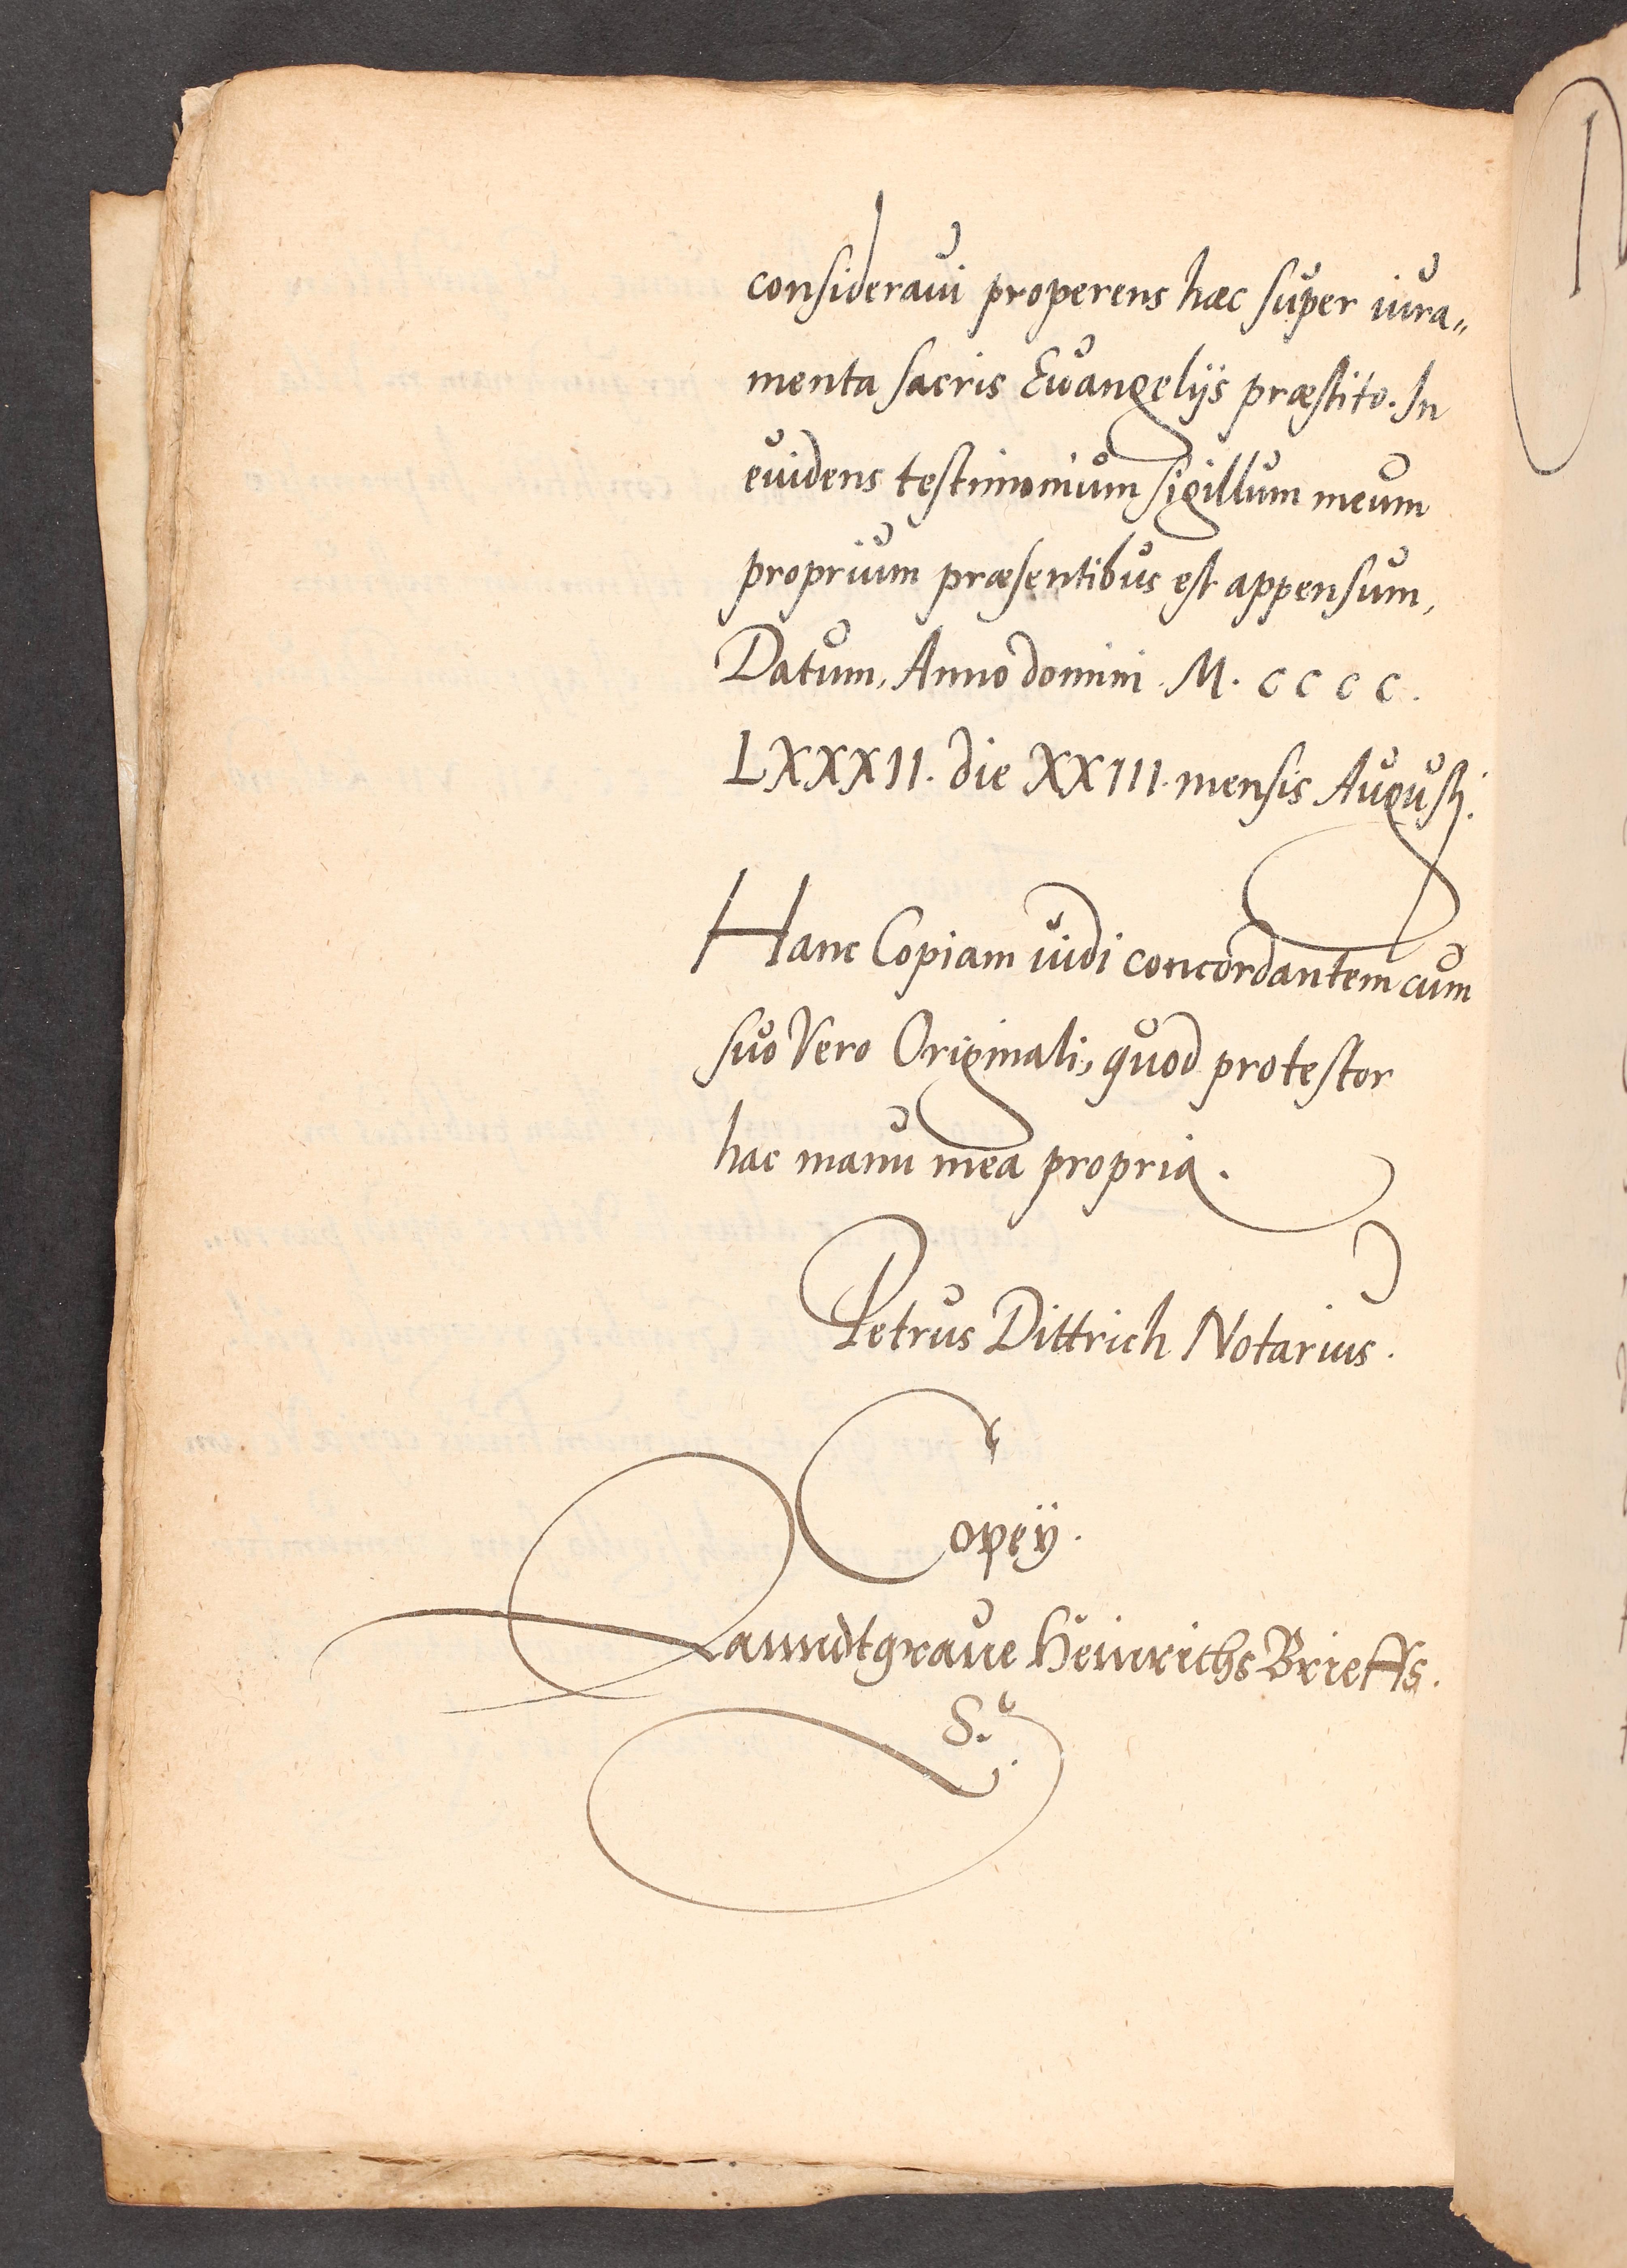 consideraui properens hæc super iura„
menta sacris Euangelijs præstito. In
euidens testimonium sigillum meum
proprium præsentibus est appensum,
Datum, Anno domini M. c c c c.
LXXXII. die XXIII. mensis Augusti.
Hanc Copiam uidi concordantem cum
suo Vero Originali, quod protestor
hac manu mea propria.
Petrus Dittrich Notarius.
Copey.
Lanndtgraue Heinrichs Brieffs.
S.